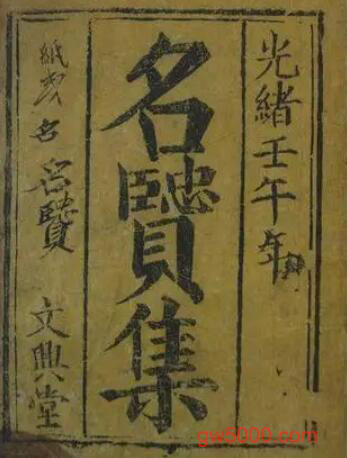 光緒壬午年
名贒集
名 名贒 文興堂
gw5000.com